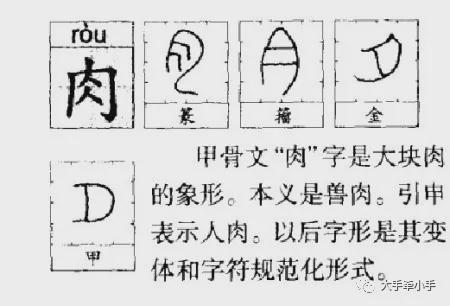 ròu
肉
篆
籀
金
甲
甲骨文“肉”字是大块肉
的象形。本义是兽肉。引申
表示人肉。以后字形是其变
体和字符规范化形式。
大手牵小手